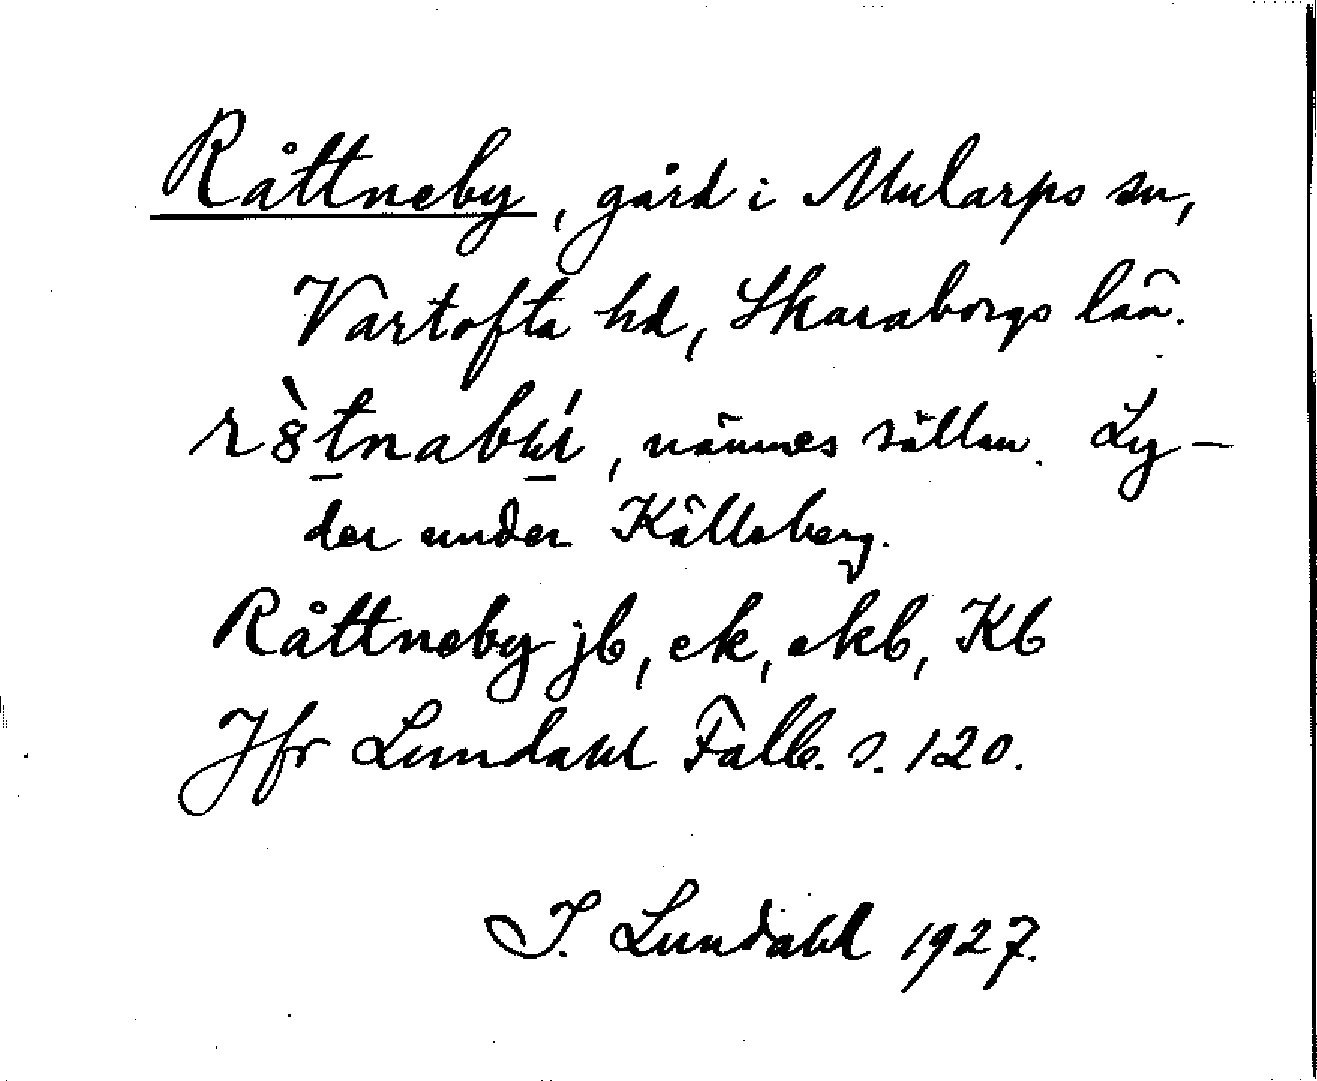 Råttneby, gård i Mularps sn,
Vartofta hd, Skaraborgs län.
nämnes sällan. Ly-
der under Källeberg.
Råttneby jb, ek, ekb, Kb
Jfr Lundahl Falb. s. 120.
I. Lundahl 1927.